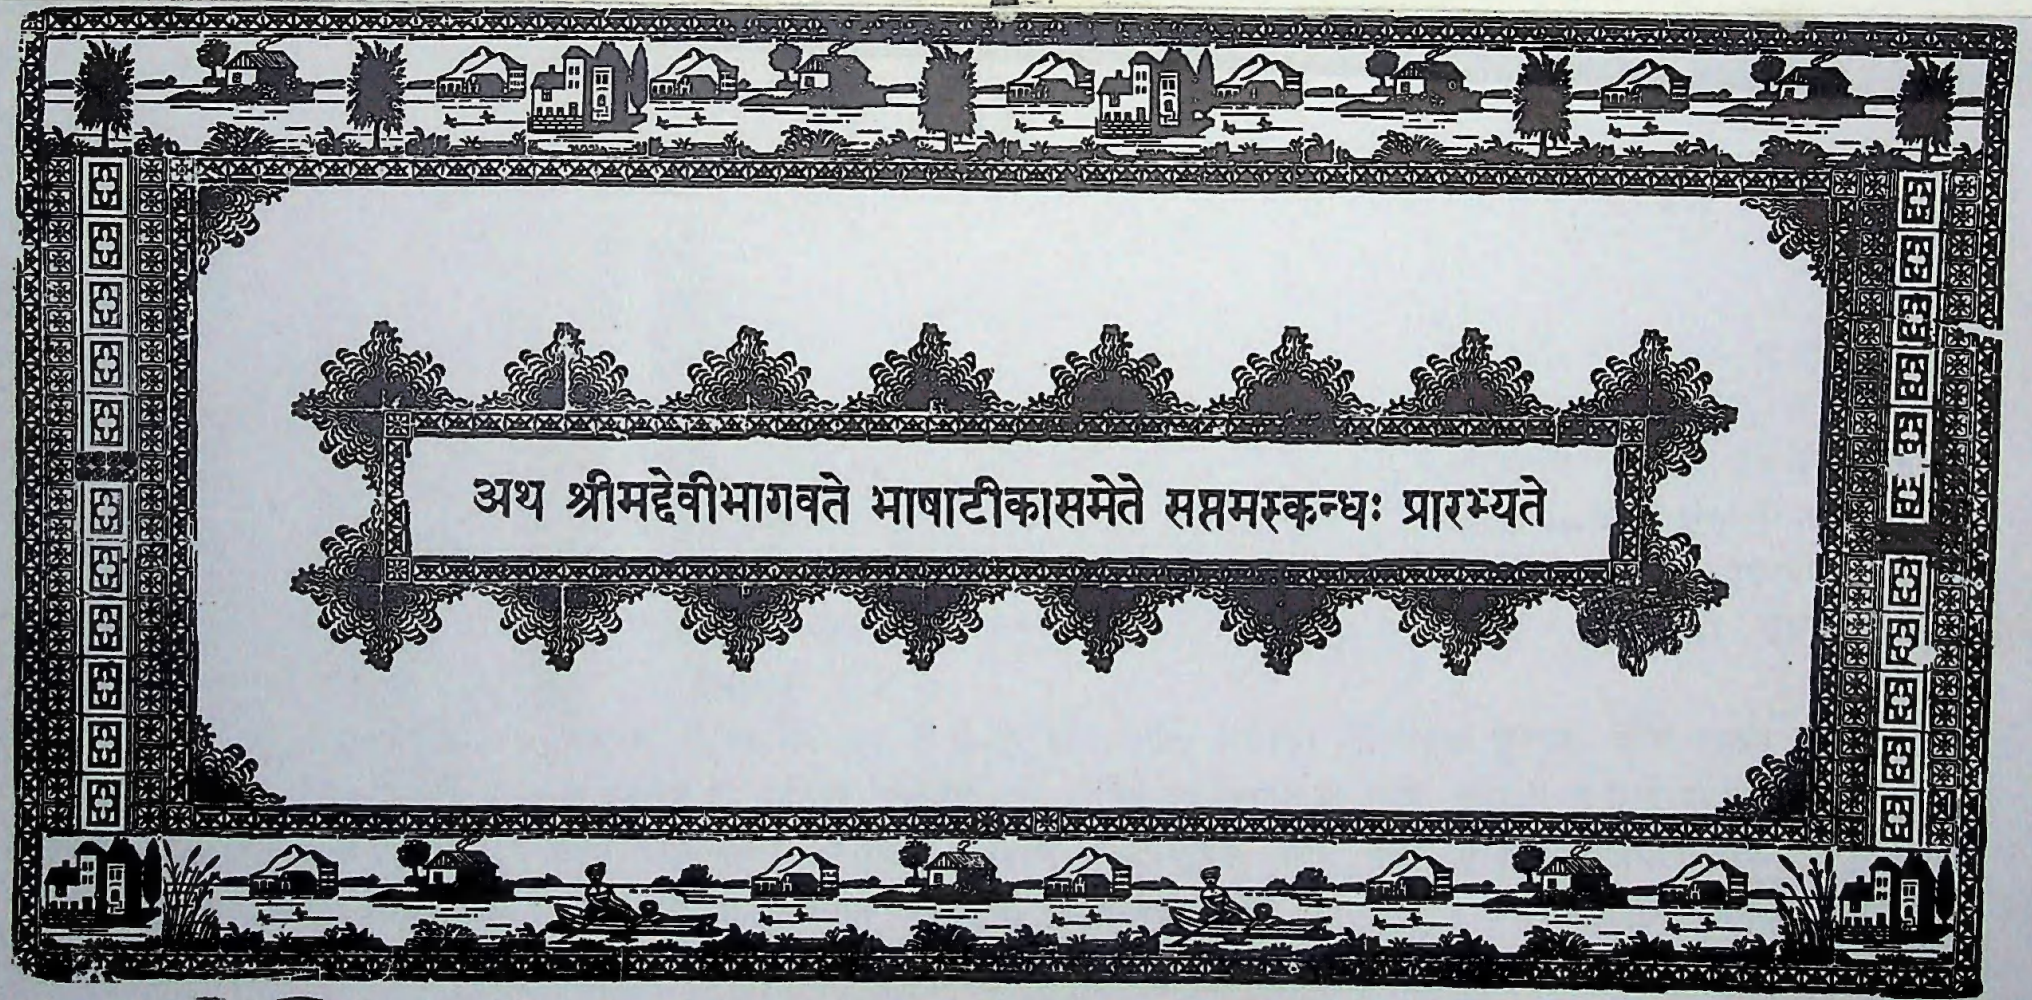 अथ श्रीमद्देवीभागवते भाषाटीकासमेते सप्तमस्कन्धः प्रारभ्यते